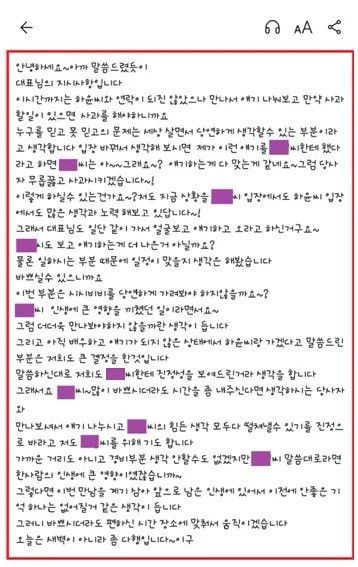 안녕하세요~아까 말씀드렸듯이
대표님의 지시사항입니다
이시간까지는 하윤씨와 연락이 되진 않았으나 만나서 얘기 나눠보고 만약 사과
할일이 있으면 사과를 해야하니까요
누구를 믿고 못 믿고의 문제는 세상 살면서 당연하게 생각할수 있는 부분이라
고 생각합니다 입장 바꿔서 생각해 보시면 제가 이런 얘기를 씨한테 했다
라고 하면 씨는 아~~그래요? 얘기하는게 다 맞는거 같네요~그럼 당사
자 무릎꿇고 사과시키겠습니다~!
이렇게 하실수 있는건가요~?저도 지금 상황을 씨 입장에서도 하윤씨 입장
에서도 많은 생각과 노력 해보고 있답니다~!
그래서 대표님도 일단 같이 가서 얼굴보고 얘기하고 오라고 하신거구요~
씨도 보고 얘기하는게 더 나은거 아닐까요?
물론 일하시는 부분 때문에 일정이 맞을지 생각은 해봤습니다
바쁘실수 있으니까요
이번 부분은 시시비비를 당연하게 가려봐야 하지않을까요~?
씨 인생에 큰 영향을 끼쳤던 일이라면서요~
그럼 더더욱 만나봐야하지 않을까란 생각이 듭니다
그리고 아직 배우하고 얘기가 되지 않은 상태에서 하윤씨랑 가겠다고 말씀드린
부분은 저희도 큰 결정을 한것입니다
말씀하신대로 저희도 씨한테 진정성을 보여드린거라 생각을 합니다
그래서요 씨~많이 바쁘시더라도 시간을 좀 내주신다면 생각하시는 당사자
와
만나보셔서 얘기 나누시고 씨의 힘든 생각 모두다 떨쳐낼수 있기를 진정으
로 바라고 저도 씨를 위해 기도 합니다
가까운 거리도 아니고 경비부분 생각 안할수도 없겠지만 씨 말씀대로라면
한사람의 인생에 큰 영향이였잖습니까~
그렇다면 이번 만남을 계기 삼아 앞으로 남은 인생에 있어서 이전에 안좋은 기
억 하나는 없어질거 같은 생각이 듭니다
그러니 바쁘시더라도 편하신 시간 장소에 맞춰서 움직이겠습니다
오늘은 새벽이 아니라 좀 다행입니다~이구